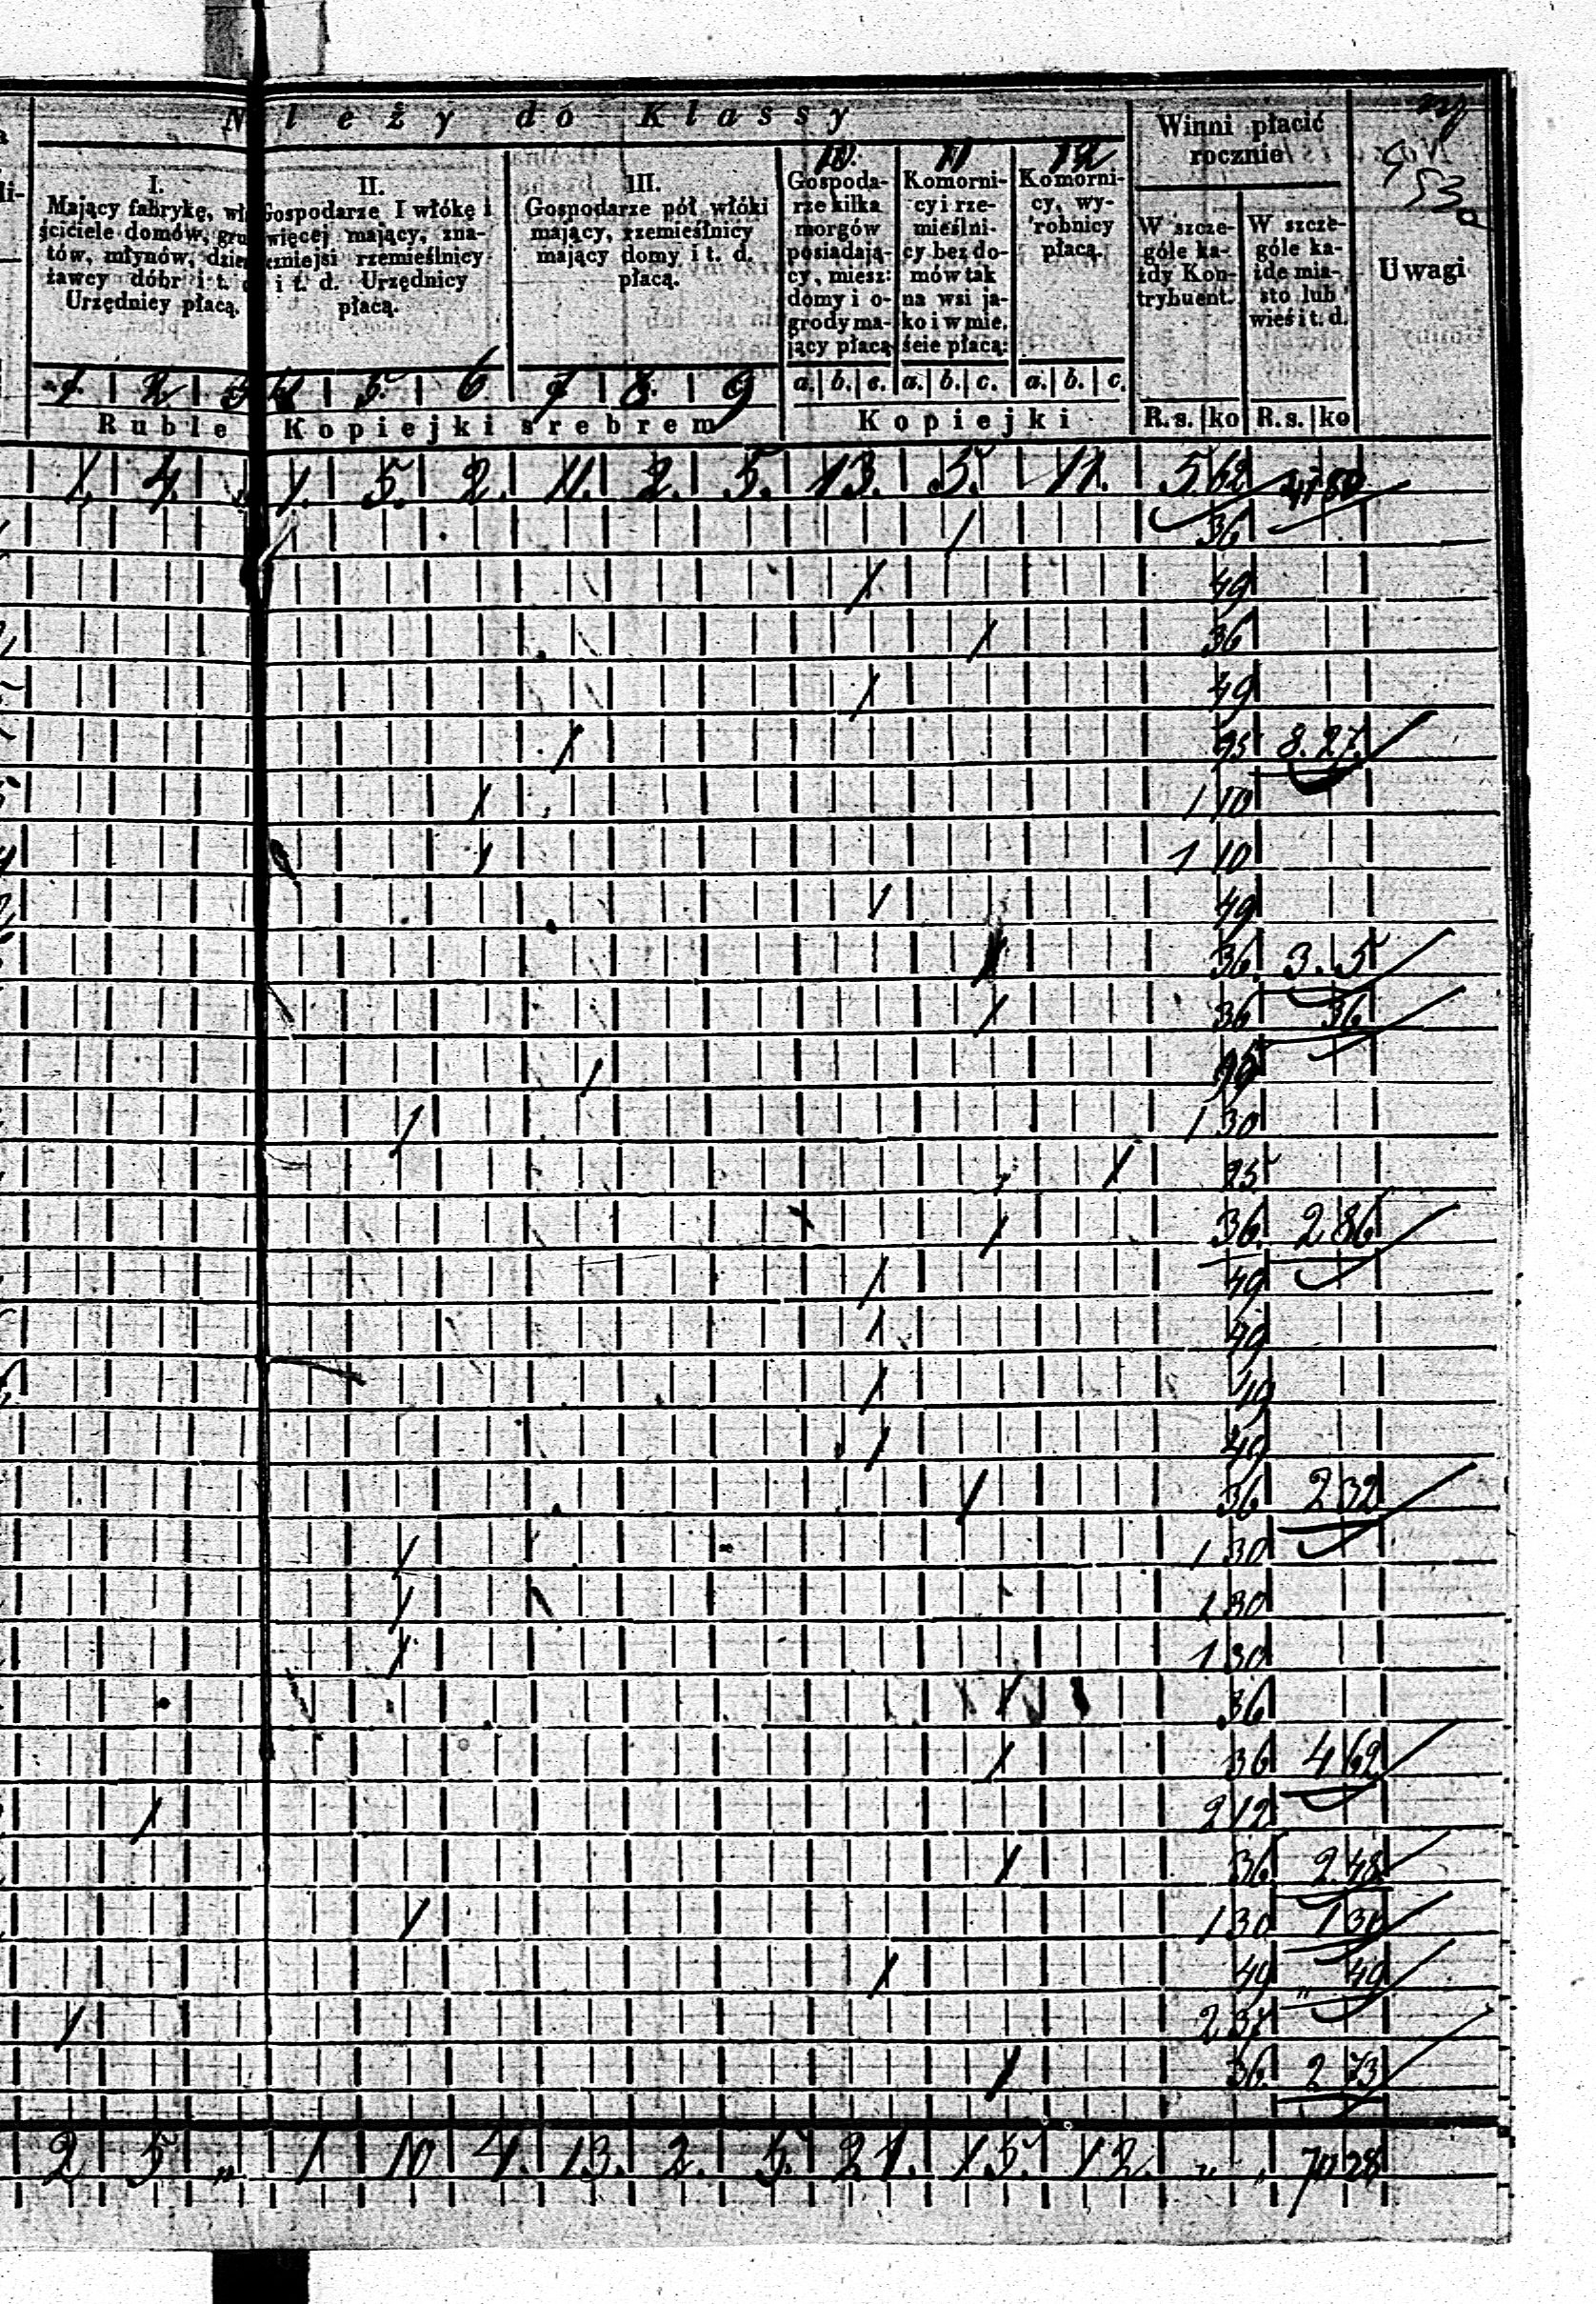 N leży do Klassy
Winni płacić
rocznie
53a
I.
Mający fabrykę, wł
ściciele domów, gru
tów, młynów, dzier
żawcy dóbr i t. d
Urzędnicy płacą.
II.
Gospodarze I włókę i
więcej mający, zna-
czniejsi rzemieślnicy
i t. d. Urzędnicy
płacą.
III.
Gospodarze pół włóki
mający, rzemieślnicy
mający domy i t. d.
płacą.
10.
Gospoda-
rze kilka
morgów
posiadają-
cy, miesz:
domy i o-
grody ma-
jący płacą
11
Komorni-
cy i rze-
mieślni-
cy bez do-
mów tak
na wsi ja-
ko i w mie.
ście płacą:
12
Komorni-
cy, wy-
robnicy
płacą.
W szcze-
góle ka-
żdy Kon-
trybuent.
W szcze-
góle ka-
żde mia-
sto lub
wieś i t. d.
Uwagi
1. 2. 3 4 5. 6 7 8. 9 a. b. c. a. b. c. a. b. c.
Ruble Kopiejki srebrem Kopiejki R.s. ko R.s. ko
1. 4. 1. 5. 2. 11. 2. 5. 13. 5. 11. 5 62
/ 36
/ 49
/ 36
/ 49
/ 95 8. 27
/ 1 10
/ 1 10
/ 49
/ 36. 3. 5
/ 36 36
/ 95
/ 1 30
/ 25
/ 36. 2 86
/ 49
/ 49
/ 49
/ 49
/ 36 2 32
/ 1 30
/ 1 30
/ 1 30
/ 36
/ 36 4 62
/ 2 12
/ 36 2. 48
/ 1 30 1 30
/ 49 " 49
/ 2 37
/ 36. 2 73
2 5 " 1 10 4. 13. 2. 5. 21. 15. 12. " " 70 28